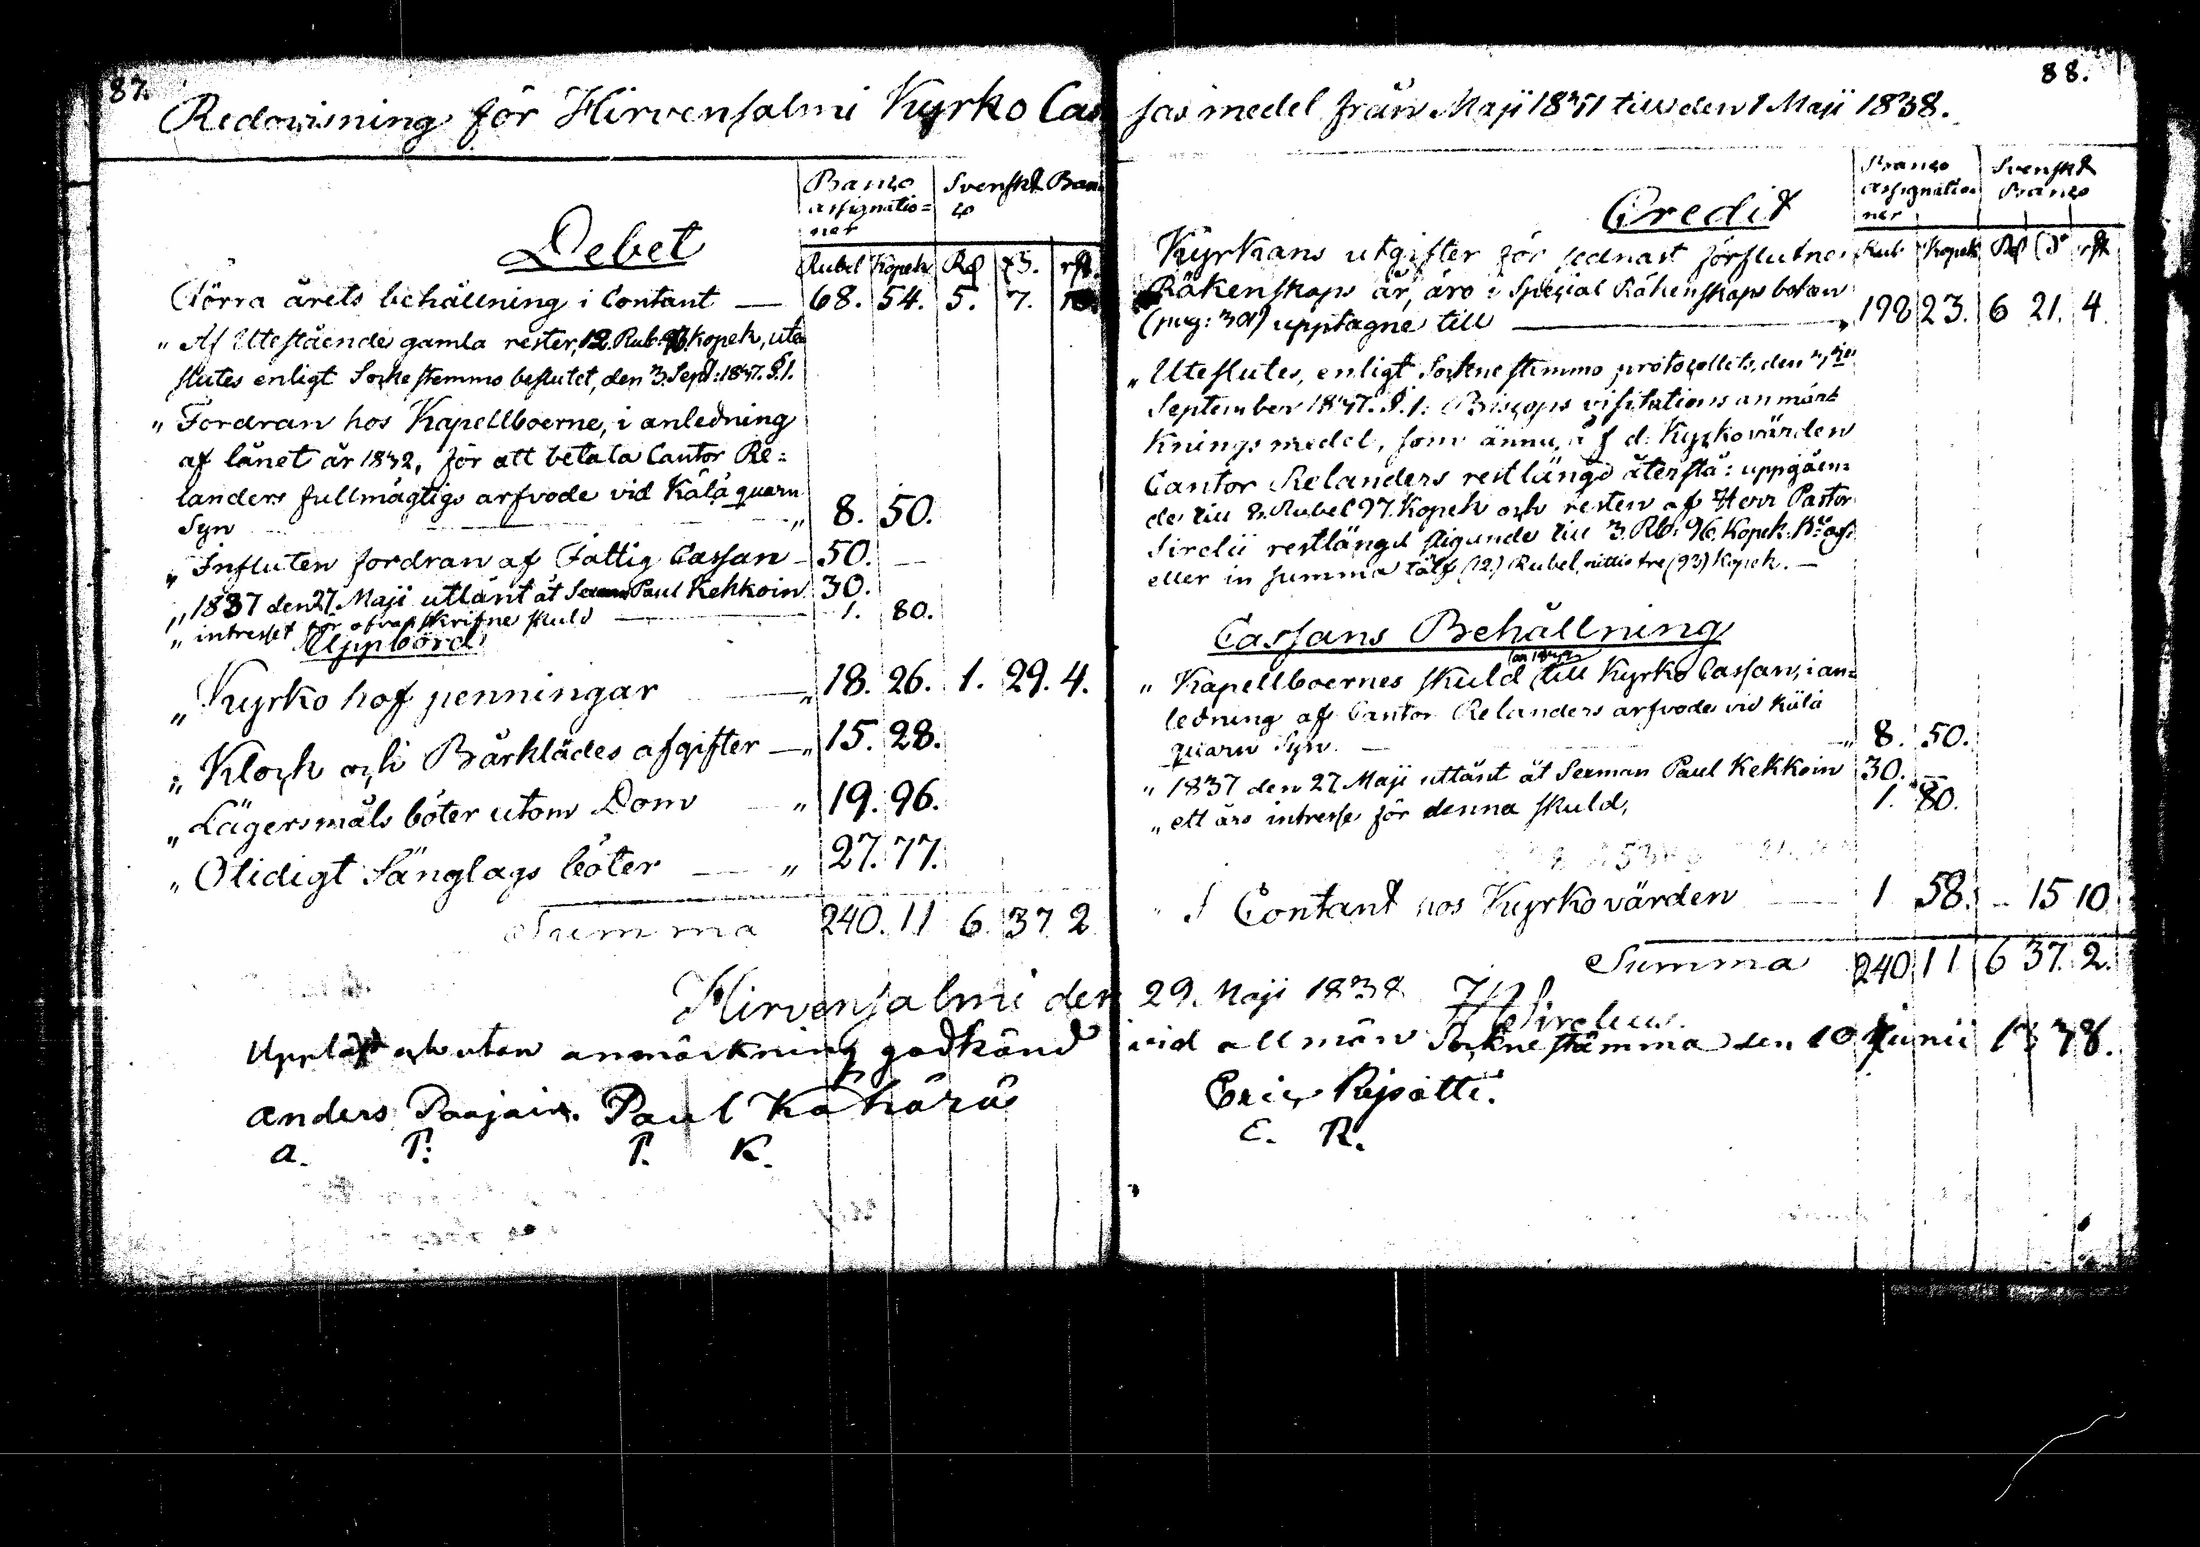 87.
Redovisning för Hirvensalmi Kyrko Cas
Banco assignatio=ner
Svenskt Banco
Debet
Rubel Kopek Rd ß. rst.
Förra årets behållning i Contant — 68. 54. 5. 7. 10.
„ Af Utestående gamla rester, 12. Rub. 93 Kopek, ute
slutes enligt Sockestemmo beslutet, den 3. Sept: 1837. §.1.
„ Fordran hos Kapellboerne, i anledning
af lånet år 1832, för att betala Cantor Re=
landers fullmägtigs arfvode vid Kälä quarn
Syn — „ 8. 50.
„ Influten fordran af Fattig Cassan — 50. —
„ 1837 den 27. Maji utlånt åt Paul Kekkoin 30.
„ intresset för ofvanskrifne skuld — 1. 80.
Uppbörd
„ Kyrko hof penningar — „ 18. 26. 1. 29. 4.
„ Klock och Bårklädes afgifter — „ 15. 28.
„ Lägersmåls böter utom Dom „ 19. 96.
„ Otidigt Sänglags böter — „ 27. 77.
Summa 240. 11 6. 37 2
Hirvensalmi den
Uppläst och utan anmärkning godkänd
Anders Paajain. Paul Kähärä
A. P. P. K.
88.
sas medel från Maji 1837 till den 1 Maji 1838.
Banco assignatio=ner
Svenskt Banco
Credit
Kyrkans utgifter för sednast förflutne Rub Kopek Rd ß rst
Räkenskaps år, äro i Special Räkenskaps boken
(pag: 301) upptagne till — „ 198 23. 6 21. 4.
„ Uteslutes, enligt Sockne stemmo protocollets, den 3
September 1837. §.1. Biscops visitations anmärk
knings medel, som ännu, å f d. Kyrkovärden
Cantor Relanders restlängd återstå: uppgåen=
de till 8. Rubel 97. Kopek och resten af Herr Pastor
Sirelii restlängd stigande till 3. Rb: 96. Kopek. Bco ass:
eller in summa tolf (12.) Rubel, nittiotre (93) Kopek. —
Cassans Behållning
„ Kapellboernes skuld till Kyrko Cassan, i an=
ledning af Cantor Relanders arfvode vid Kälä
quarn Syn. — „ 8. 50.
„ 1837 den 27. Maji utlånt åt Sexman Paul Kekkoin 30. —
„ ett års intresse för denna skuld, 1. 80.
„ I Contant hos Kyrkovärden — 1 58. - 15 10
Summa 240 11 6 37. 2.
29. Maji 1838. Sirelius.
vid allmän Sockne stämma den 10 Junii 1838.
Eric Ripatti.
E. R.